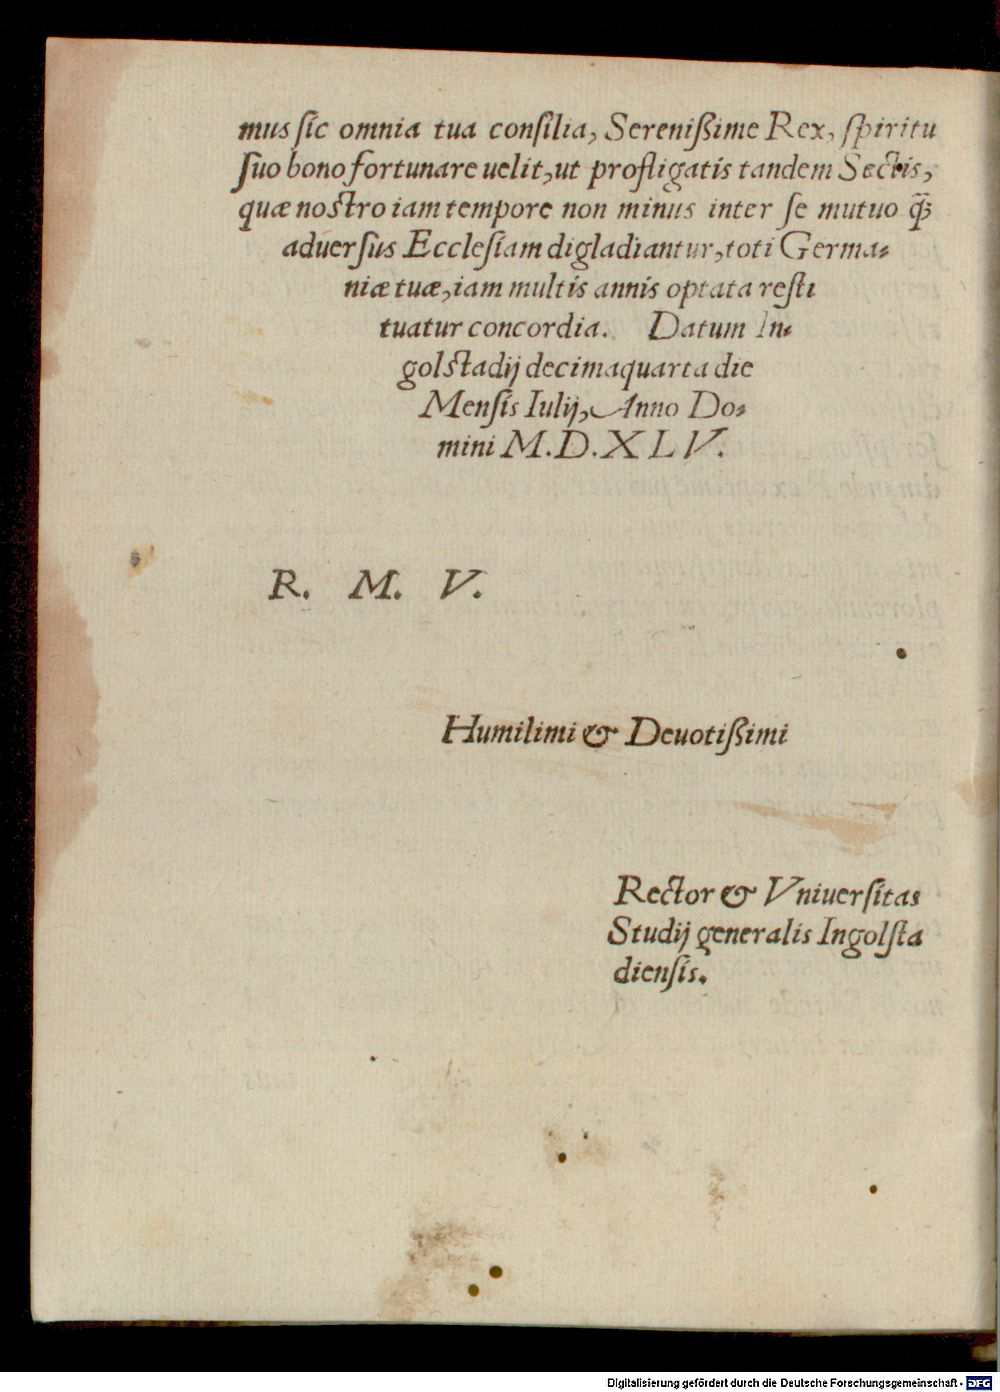 mus sic omnia tua consilia, Serenißime Rex, spiritu
suo bono fortunare uelit, ut profligatis tandem Sectis,
quæ nostro iam tempore non minus inter se mutuo q̃ꝫ
aduersus Ecclesiam digladiantur, toti Germa-
niæ tuæ, iam multis annis optata resti
tuatur concordia. Datum In-
golstadij decimaquarta die
Mensis Iulij, Anno Do-
mini M.D.XLV.
R. M. V.
Humilimi & Deuotißimi
Rector & Vniuersitas
Studij generalis Ingolsta
diensis.
Digitalisierung gefördert durch die Deutsche Forschungsgemeinschaft - DFG